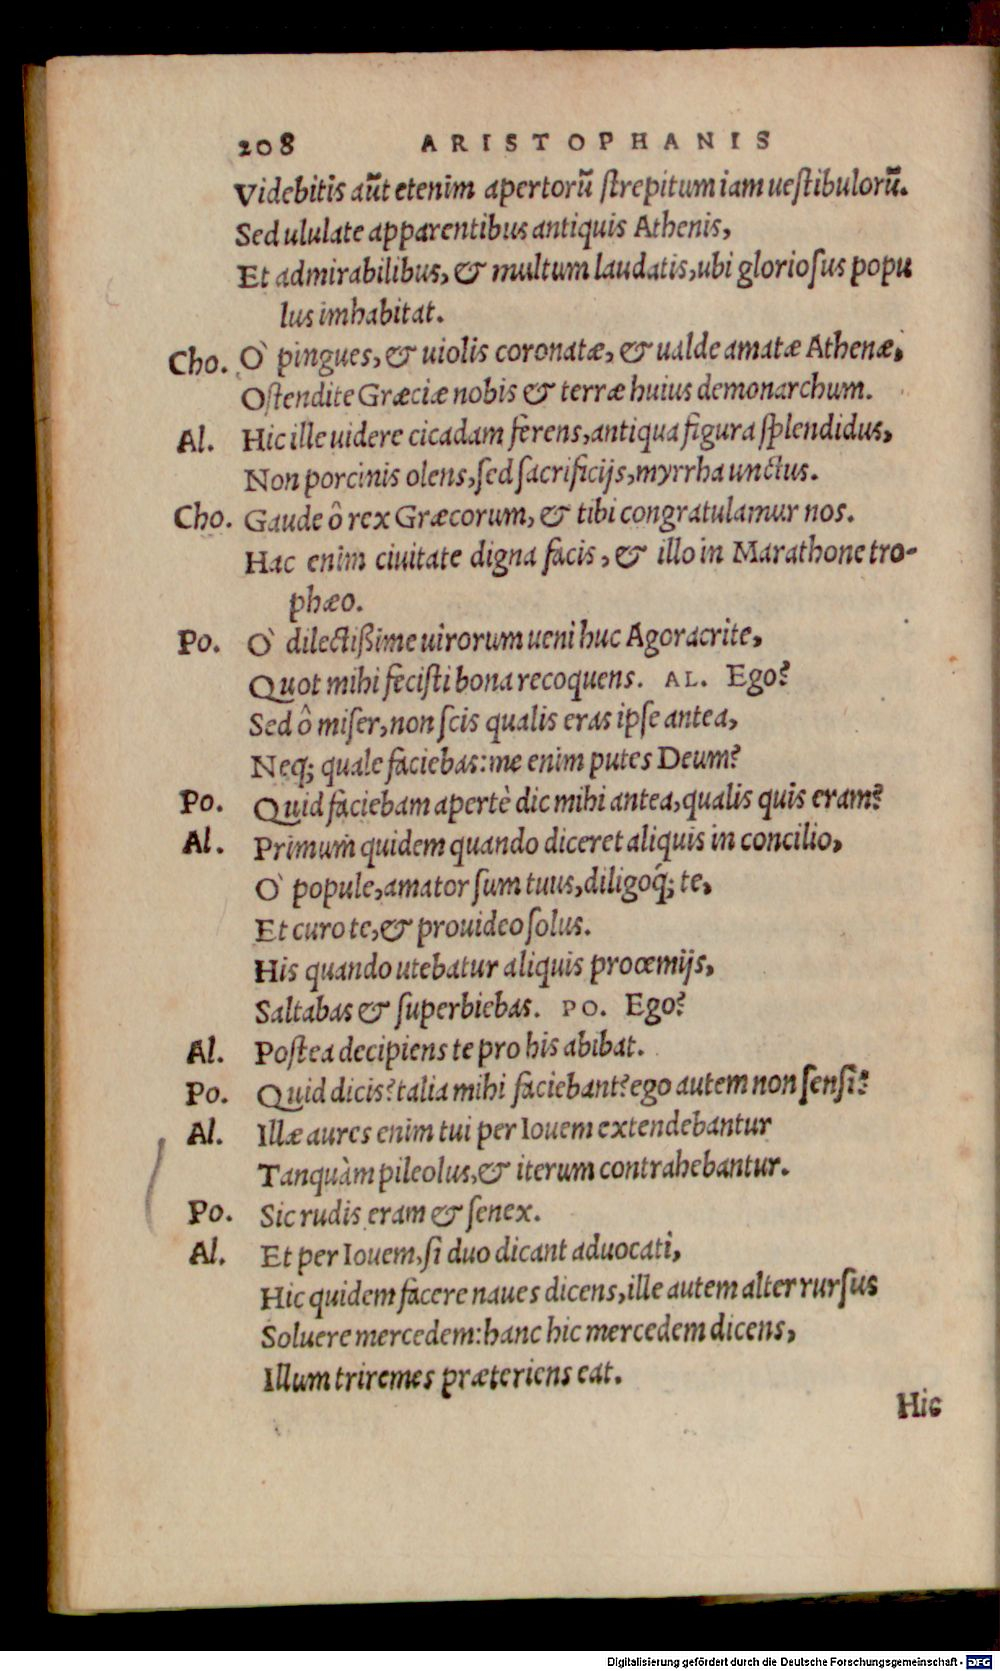 208 ARISTOPHANIS
Videbitis aūt etenim apertorū ſtrepitum iam ueſtibulorū.
Sed ululate apparentibus antiquis Athenis,
Et admirabilibus, & multum laudatis, ubi glorioſus popu
lus imhabitat.
Cho. O` pingues, & uiolis coronatæ, & ualde amatæ Athenæ,
Oſtendite Græciæ nobis & terræ huius demonarchum.
Al. Hic ille uidere cicadam ferens, antiqua figura ſplendidus,
Non porcinis olens, ſed ſacrificijs, myrrha unctus.
Cho. Gaude ô rex Græcorum, & tibi congratulamur nos.
Hac enim ciuitate digna facis, & illo in Marathone tro-
phæo.
Po. O` dilectißime uirorum ueni huc Agoracrite,
Quot mihi feciſti bona recoquens. AL. Ego?
Sed ô miſer, non ſcis qualis eras ipſe antea,
Neq; quale faciebas: me enim putes Deum?
Po. Quid faciebam apertè dic mihi antea, qualis quis eram?
Al. Primum quidem quando diceret aliquis in concilio,
O` popule, amator ſum tuus, diligoq́; te,
Et curo te, & prouideo ſolus.
His quando utebatur aliquis proœmijs,
Saltabas & ſuperbiebas. PO. Ego?
Al. Poſtea decipiens te pro his abibat.
Po. Quid dicis? talia mihi faciebant? ego autem non ſenſi?
Al. Illæ aures enim tui per Iouem extendebantur
Tanquàm pileolus, & iterum contrahebantur.
Po. Sic rudis eram & ſenex.
Al. Et per Iouem, ſi duo dicant aduocati,
Hic quidem facere naues dicens, ille autem alter rurſus
Soluere mercedem: hanc hic mercedem dicens,
Illum triremes præteriens eat.
Hic
Digitalisierung gefördert durch die Deutsche Forschungsgemeinschaft - DFG